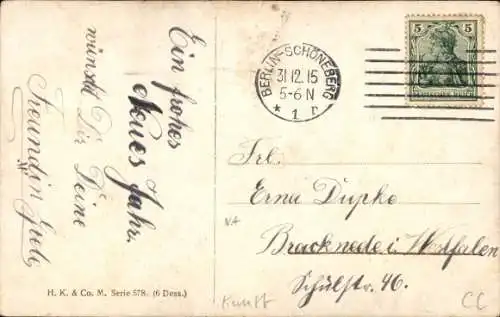 Ein frohes
Neues Jahr.
wünscht Dir Deine
Freundin
H. K. & Co. M. Serie 578. (6 Dess.)
BERLIN-SCHÖNEBERG
31.12.15
5-6 N
* 1 r
5 5
DEUTSCHES REICH
Frl.
Erna Düpke
Brackwede i. Westfalen
Schulstr. 46.
Kunst
CC